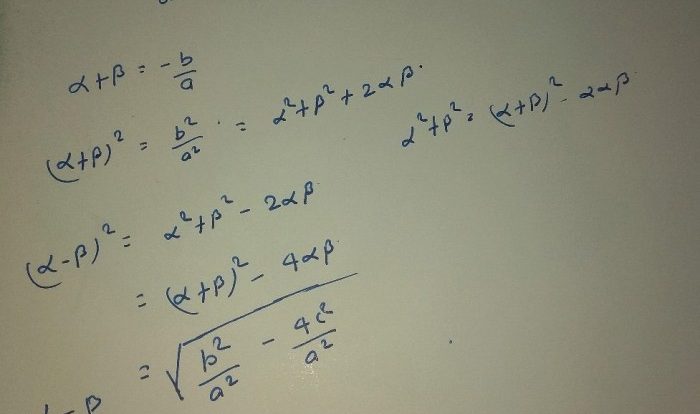 α+β = -b/a
(α+β)² = b²/a² = α²+β²+2αβ.
α²+β² = (α+β)² - 2αβ
(α-β)² = α²+β² - 2αβ
= (α+β)² - 4αβ
α-β = √(b²/a² - 4c²/a²)